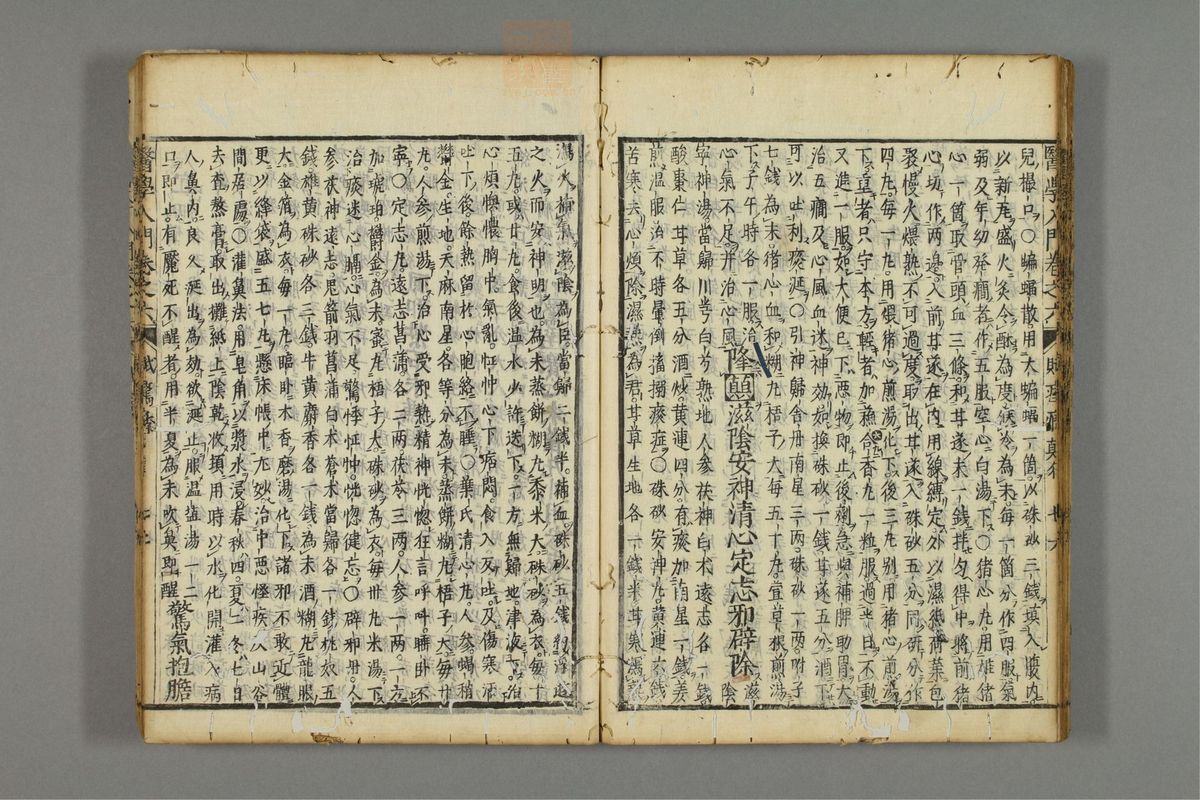 醫學入門卷之六
兒撮口○蝙蝠散用大蝙蝠一箇以硃砂三錢填入腹內
以新瓦盛火炙令酥為度候冷為末每一箇分作四服氣
弱及年幼發癇者分作五服空心白湯下○猪心丸用雄猪
心一箇取管頭血三條和甘遂末一錢拌勻得中將前猪
心切作兩邊入前甘遂在內用線縛定外以濕紙荷葉包
裹慢火煨熟不可過度取出甘遂入硃砂五分同研分作
四丸每一丸用煨猪心煎湯化下後三丸別用猪心煎湯
下重者只守本方輕者加蘇合香丸一粒服過半日不動
又進一服如大便已下惡物即止後劑急與神脾助胃大
治五癇及心風血迷神効如換硃砂一錢甘遂五分酒下
可以吐利痰涎○引神歸舍丹南星三兩硃砂一兩附子
七錢為末猪心血和糊丸梧子大每五十丸萱草根煎湯
下子午時各一服治
心氣不足并治心風隆興滋陰安神清心定志邪辟除滋陰
寧神湯當歸川芎白芍熟地人參茯神白朮遠志各一錢
酸棗仁甘草各五分酒炒黃連四分有痰加南星一錢姜
煎溫服治不時暈倒搐搦痰症○硃砂安神丸黃連六錢
苦寒去心煩除濕熱為君甘草生地各一錢半甘寒瀉
瀉火補氣滋陰為臣當歸二錢半補血硃砂五錢納浮遊
之火而安神明也為末蒸餅糊丸黍米大硃砂為衣每十
五丸或廿丸食後溫水少許送下一方無歸地津液下治
心煩懊憹胸中氣亂怔忡心下痞悶食入反吐及傷寒汗
吐下後餘熱留於心胞絡不睡○葉氏清心丸人參蝎梢
鬱金生地天麻南星各等分為末蒸餅糊丸梧子大每廿
丸人參煎湯下治心受邪熱精神恍惚狂言呼叫睡臥不
寧○定志丸遠志菖蒲各二兩茯苓三兩人參一兩一方
加琥珀鬱金為末蜜丸梧子大硃砂為衣每卅丸米湯下
治痰迷心膈心氣不足驚悸怔忡恍惚健忘○辟邪丹人
參茯神遠志鬼箭羽菖蒲白朮蒼朮當歸各一錢桃奴五
錢雄黃硃砂各三錢牛黃麝香各一錢為末酒糊丸龍眼
大金箔為衣每一丸臨臥木香磨湯化下諸邪不敢近體
更以絳袋盛五七丸懸床帳中尤妙治中惡怪疾及山谷
間居處○灌鼻法用皂角以漿水浸春秋四夏二冬七日
去查熬膏取出攤紙上陰乾收頓用時以水化開灌入病
人鼻內良久涎出為効欲涎止服溫鹽湯一二
口即止有魘死不醒者用半夏為末吹鼻即醒驚氣抱膽
醫學入門卷之六